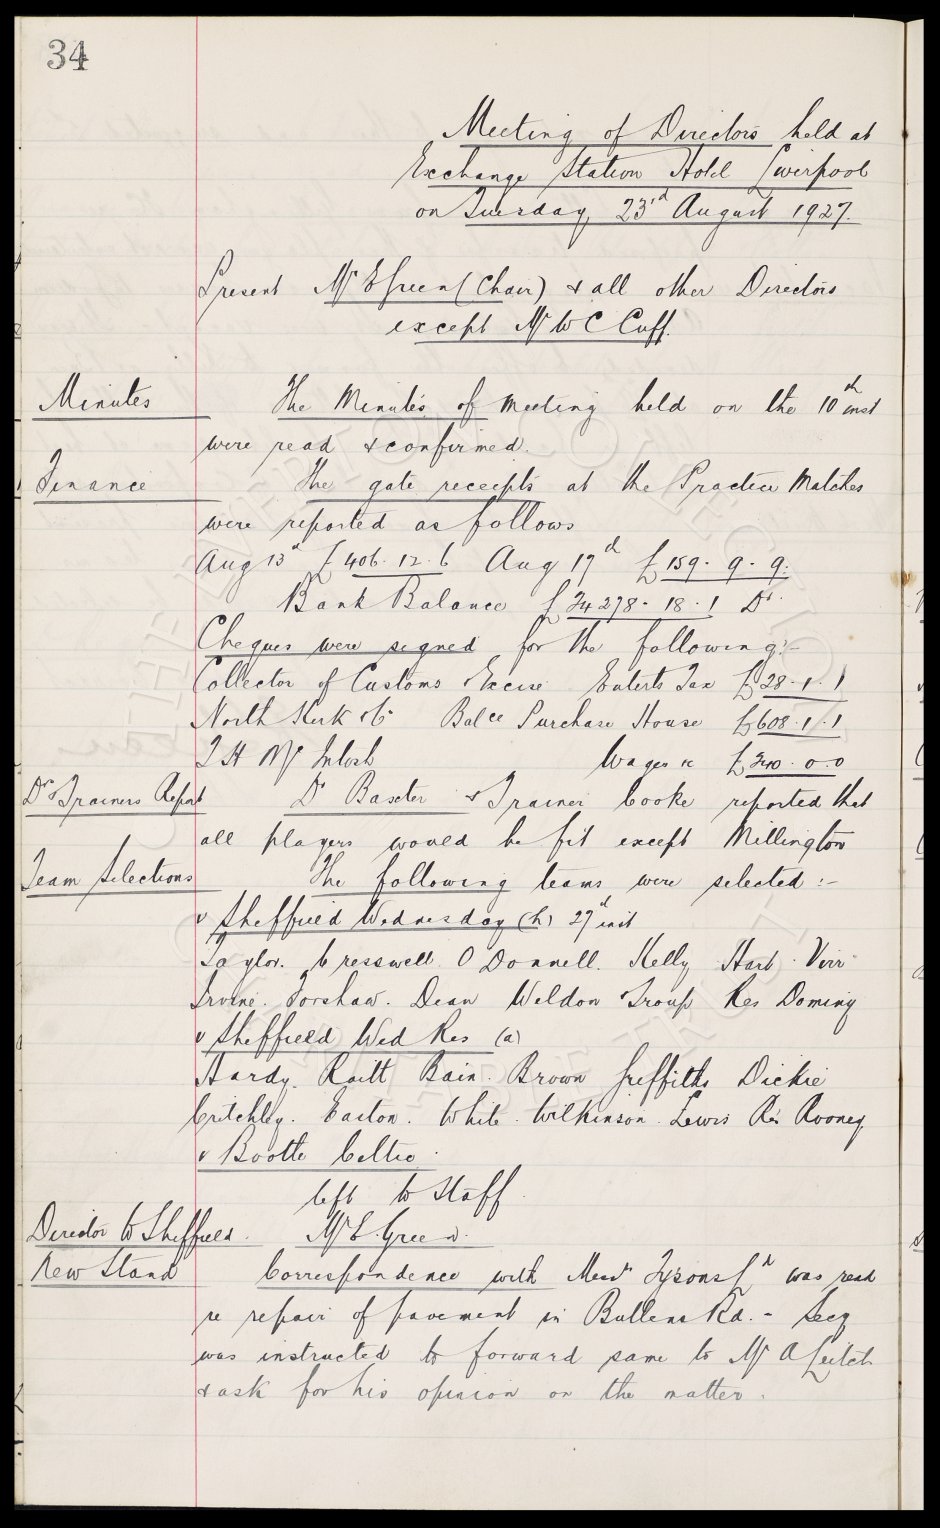 34
Meeting of Directors held at
Exchange Station Hotel Liverpool
on Tuesday, 23rd August 1927.
Present Mr E Green (Chair) & all other Directors
except Mr W C Cuff.
Minutes The Minutes of meeting held on the 10th inst
were read & confirmed.
Finance The gate receipts at the Practice Matches
were reported as follows
Aug 13th £406.12.6 Aug 17th £159.9.9.
Bank Balance £24278.18.1 Dr.
Cheques were signed for the following:-
Collector of Customs & Excise Enterts Tax £28.1.1
North Kirk & Co Balce Purchase House £608.1.1
T H McIntosh Wages &c £340.0.0
Dr & Trainers Report Dr Baxter & Trainer Cooke reported that
all players would be fit except Millington
Team Selections The following teams were selected:-
v Sheffield Wednesday (h) 27th inst
Taylor. Cresswell. O'Donnell. Kelly Hart. Virr
Irvine. Forshaw. Dean Weldon Troup Res Dominy
v Sheffield Wed Res (a)
Hardy. Raitt Bain. Brown Griffiths Dickie
Critchley. Easton. White. Wilkinson. Lewis Res Rooney
v Bootle Celtic.
left to Staff.
Director to Sheffield. Mr E. Green.
New Stand Correspondence with Messrs Tysons Ld was read
re repair of pavement in Bullens Rd. - Secy
was instructed to forward same to Mr A Leitch
& ask for his opinion on the matter.